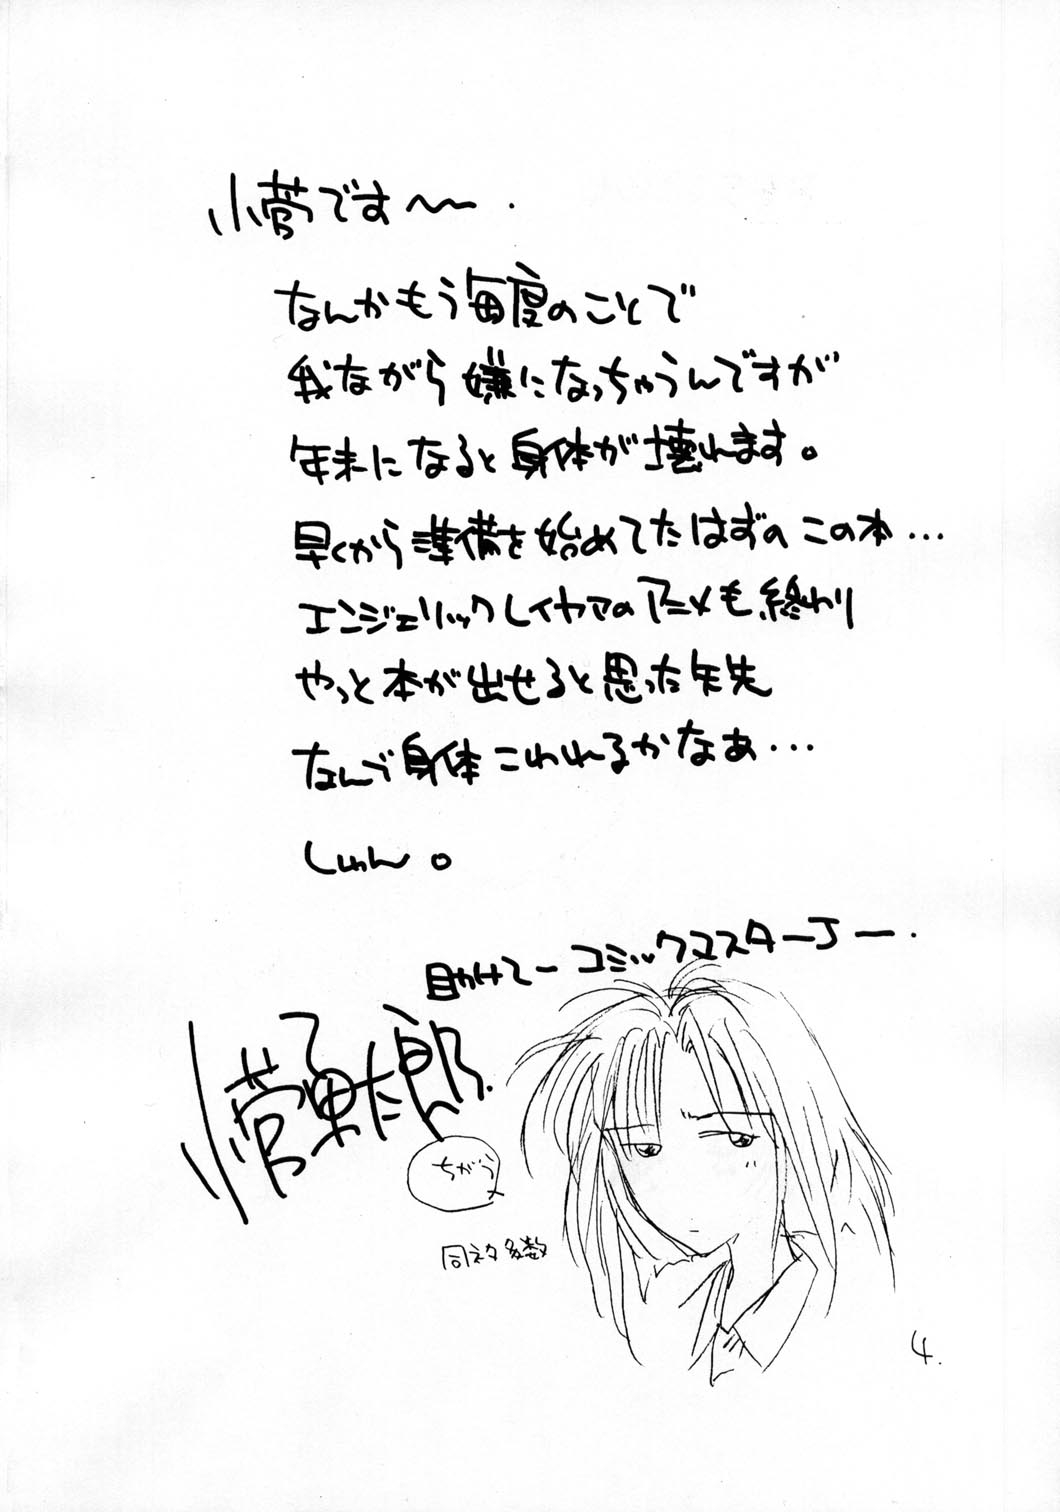 小菅です〜〜.
なんかもう毎度のことで
我ながら嫌になっちゃうんですが
年末になると身体が壊れます。
早くから準備を始めてたはずのこの本…
エンジェリックレイヤァのアニメも終わり
やっと本が出せると思った矢先
なんで身体こわれるかなぁ…
しゅん。
助けてーコミックマスターJー.
小菅勇太郎.
ちがう
同ネタ多数
4.